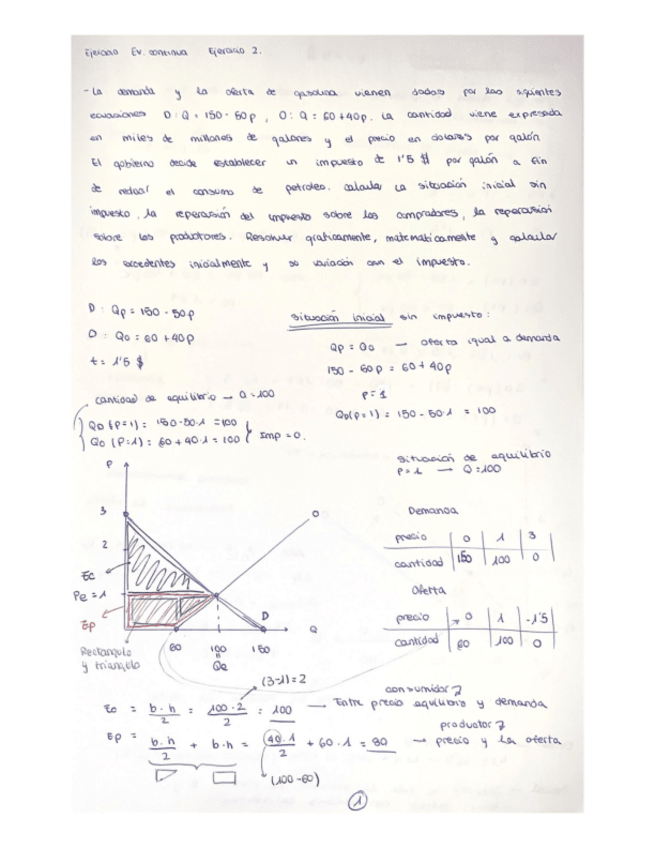 Ejercicio Ev. continua Ejercicio 2.
- La demanda y la oferta de gasolina vienen dadas por las siguientes
ecuaciones D: Q = 150 - 50p, O: Q = 60 + 40p. La cantidad viene expresada
en miles de millones de galones y el precio en dolares por galón
El gobierno decide establecer un impuesto de 1'5 $ por galón a fin
de reducir el consumo de petroleo. Calcular la situación inicial sin
impuesto, la repercusión del impuesto sobre los compradores, la repercusión
sobre los productores. Resolver graficamente, matemáticamente y calcular
los excedentes inicialmente y su variación con el impuesto.
D: QD = 150 - 50p
O: QO = 60 + 40p
t = 1'5 $
Situación inicial sin impuesto:
QD = QO → oferta igual a demanda
150 - 50p = 60 + 40p
p = 1
QD(p=1) = 150 - 50·1 = 100
cantidad de equilibrio → Q = 100
QD (P=1) = 150-50·1 = 100
QO (P=1) = 60 + 40·1 = 100
Imp = 0.
Situación de equilibrio
P = 1 → Q = 100
P
3
2
Pe = 1
Ec
Ep
O
D
Q
60 100 150
Qe
Rectangulo
y triangulo
Demanda
precio 0 1 3
cantidad 150 100 0
Oferta
precio 0 1 -1'5
cantidad 60 100 0
(3-1) = 2
Ec = b·h / 2 = 100·2 / 2 = 100 → Entre precio equilibrio y demanda
consumidor
productor
Ep = b·h / 2 + b·h = 40·1 / 2 + 60·1 = 80 → precio y la oferta
(100-60)
1